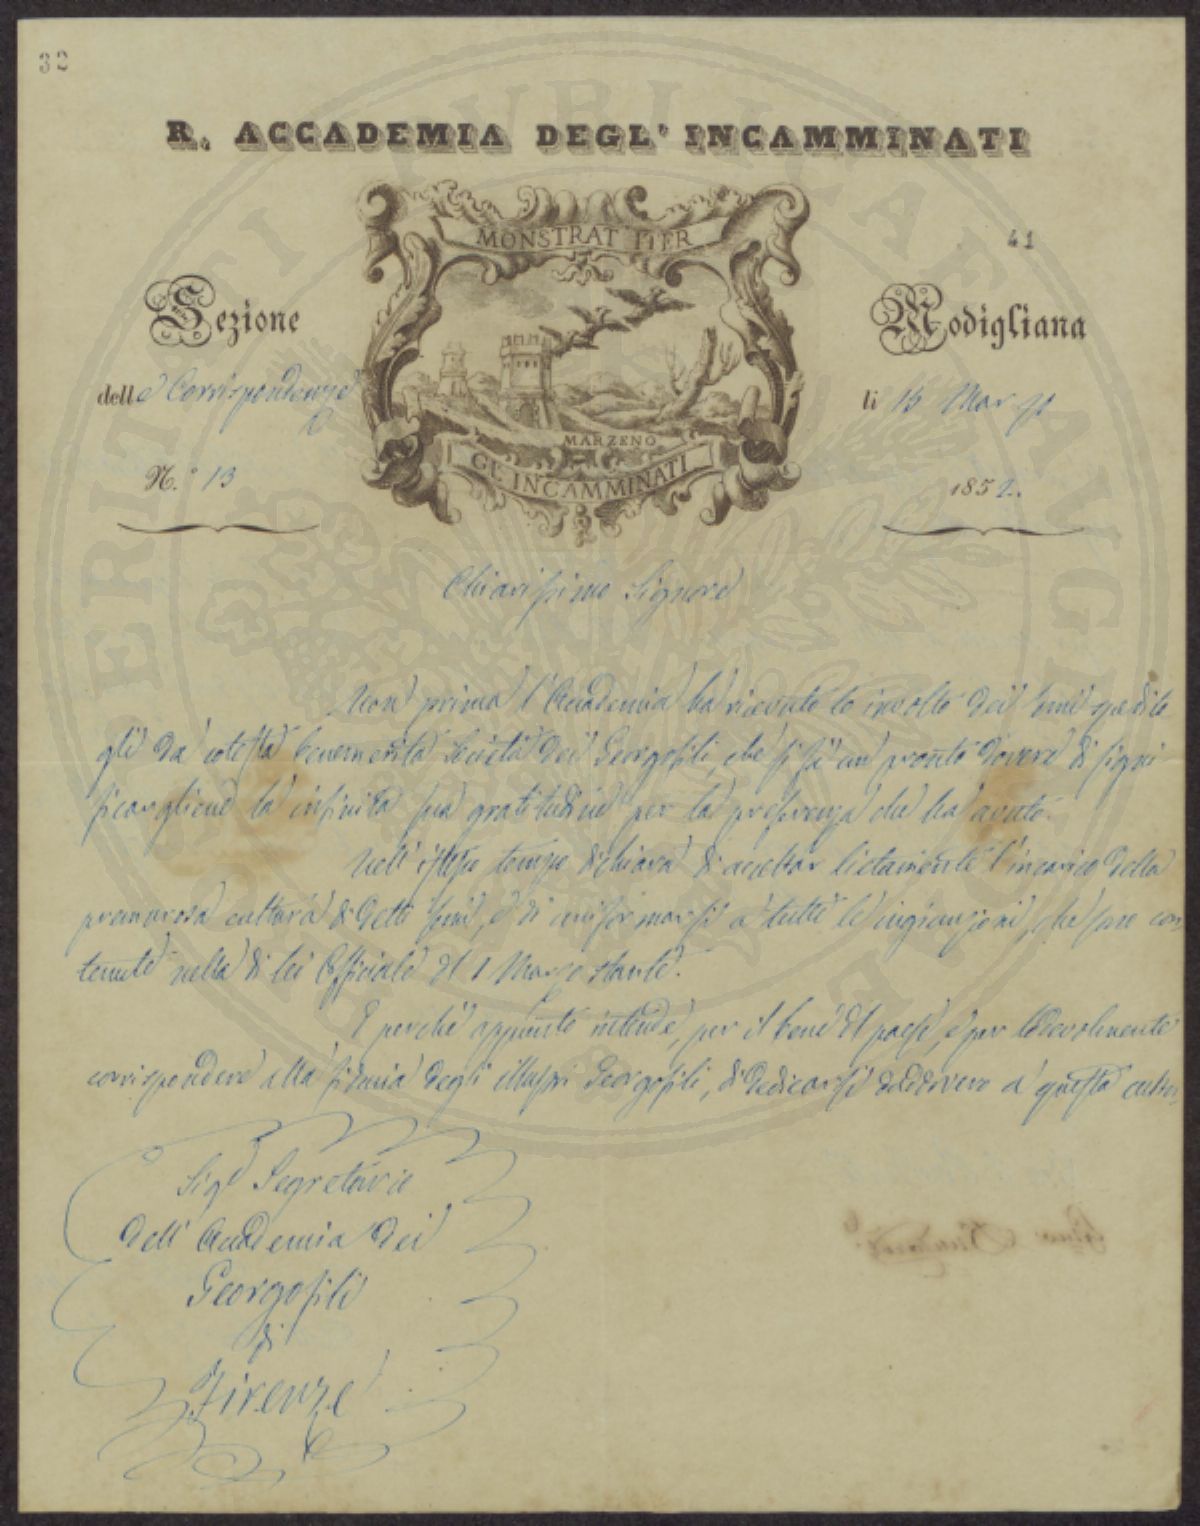 32
R. ACCADEMIA DEGL' INCAMMINATI
MONSTRAT ITER
41
Sezione
Modigliana
delle Corrispondenze
li 15 Marzo
MARZENO
GL' INCAMMINATI
N.° 13
1852.
Chiarissimo Signore
Non prima l'Accademia ha ricevuto lo involto dei semi spedito
gli da cotesta benemerita Società dei Georgofili, che si fà un pronto dovere di signi
ficargliene la infinita sua gratitudine per la preferenza che ha avuto.
Nell'istesso tempo dichiara di accettar lietamente l'incarico della
premurosa cultura di detti semi, e di conformarsi a tutte le ingiunzioni, che sono con
tenute nella di lei Officiale del 1 Marzo stante.
E perché appunto intende, per il bene del paese, e per lodevolmente
corrispondere alla stima degli illustri Georgofili, di dedicarsi daddovero a questa cultu
Sig.e Segretario
dell' Accademia dei
Georgofili
di
Firenze